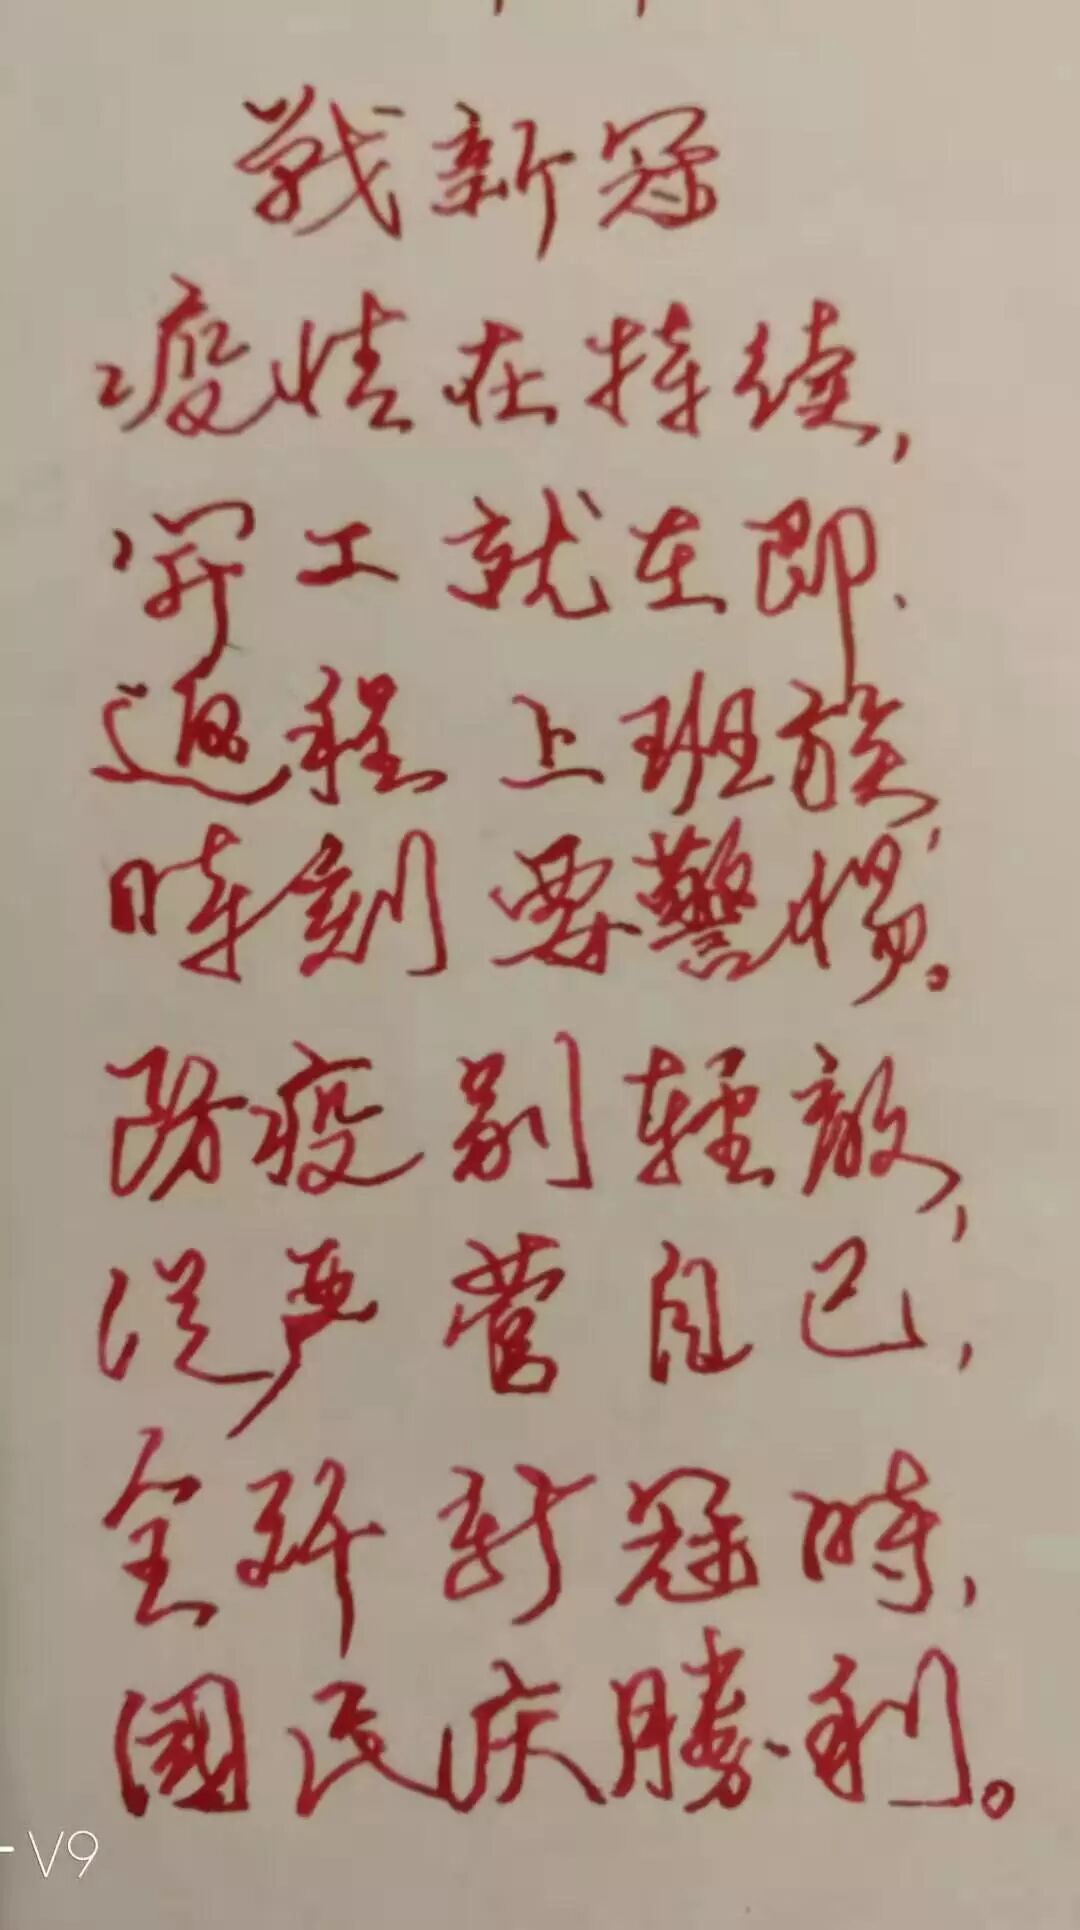 戰新冠
疫情在持续，
開工就在即．
返程上班族，
時刻要警惕。
防疫别轻敌，
從严管自己，
全歼新冠時，
國民庆勝利。
V9